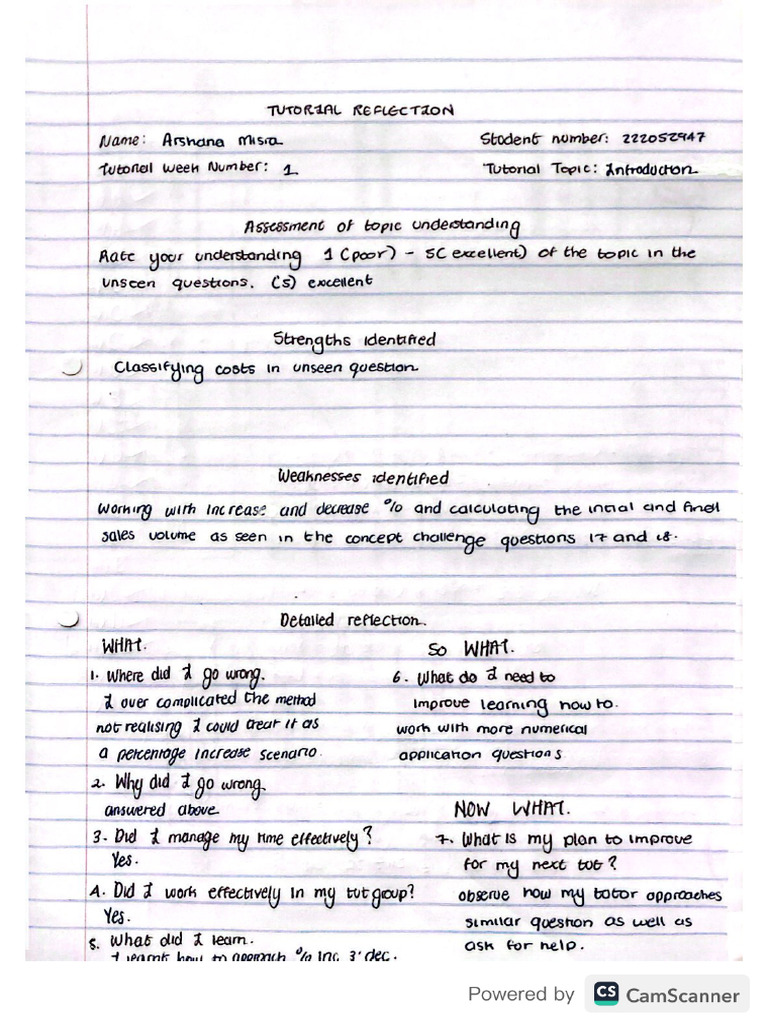 TUTORIAL REFLECTION
Name: Arshana Misra
Student number: 222052947
Tutorial Week Number: 1
Tutorial Topic: Introduction
Assessment of topic understanding
Rate your understanding 1 (poor) - 5(excellent) of the topic in the
unseen questions. (5) excellent
Strengths identified
Classifying costs in unseen question
Weaknesses identified
Working with increase and decrease % and calculating the initial and final
sales volume as seen in the concept challenge questions 17 and 18.
Detailed reflection.
WHAT.
1. Where did I go wrong.
I over complicated the method
not realising I could treat it as
a percentage increase scenario.
2. Why did I go wrong.
answered above
3. Did I manage my time effectively?
Yes.
4. Did I work effectively in my tut group?
Yes.
5. What did I learn.
I learnt how to approach % inc & dec.
SO WHAT.
6. What do I need to
improve learning how to.
work with more numerical
application questions
NOW WHAT.
7. What is my plan to improve
for my next tut?
observe how my tutor approaches
similar question as well as
ask for help.
Powered by CS CamScanner